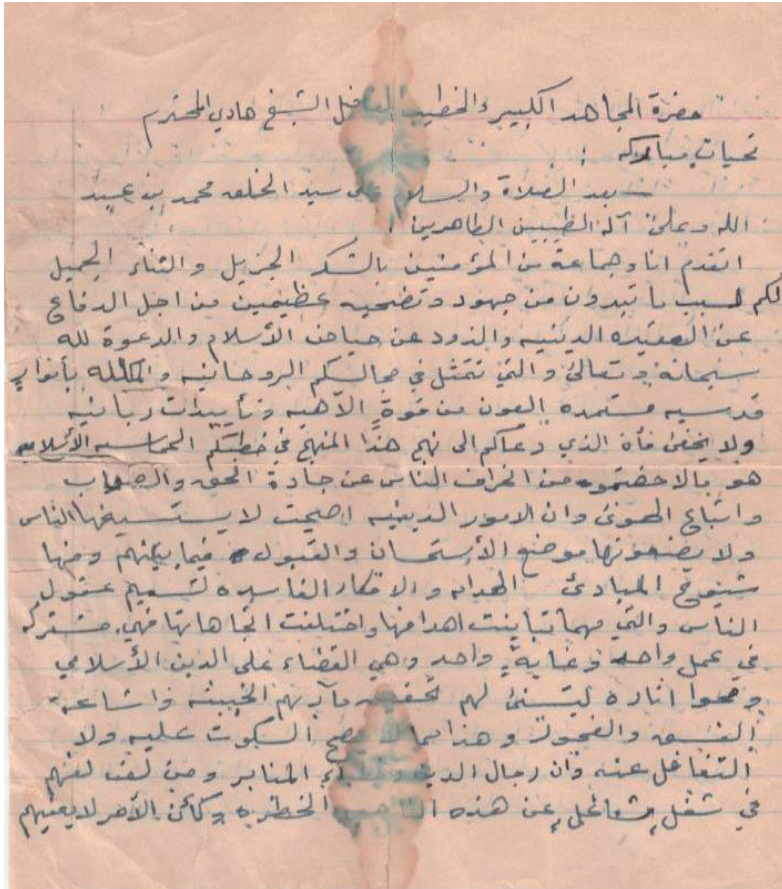 حضرة المجاهد الكبير والخطيب الفاضل الشيخ هادي المحترم
تحيات مباركه :
بعد الصلاة والسلام على سيد الخلق محمد بن عبد
الله وعلى آله الطيبين الطاهرين .
اتقدم انا وجماعة من المؤمنين بالشكر الجزيل والثناء الجميل
لكم لسبب ما تبدون من جهود وتضحيه عظيمين من اجل الدفاع
عن العقيده الدينيه والذود عن حياض الأسلام والدعوة لله
سبحانه وتعالى والتي تتمثل في مجالسكم الروحانيه والمكلله بأنوار
قدسيه مستمده العون من قوة الآهيه وتأييدات ربانيه
ولا يخفى فأن الذي دعاكم الى نهج هذا المنهج في خطبكم الحماسيه الأسلاميه
هو ما لاحضتموه من انحراف الناس عن جادة الحق والصواب
واتباع الهوى وان الامور الدينيه اصبحت لا يستسيغها الناس
ولا يضعونها موضع الأستحسان والقبول فيما بينهم ومنها
المبادئ الهدامه والافكار الفاسده لتسميم عقول
الناس والتي مهما تباينت اهدافها واختلفت اتجاهاتها فهي مشتركه
في عمل واحد وغاية واحد وهي القضاء على الدين الأسلامي
ومحوا اثاره ليتسنى لهم تحقيق مآربهم الخبيثه واشاعة
الفسق والفجور وهذا مما لا يصح السكوت عليه ولا
التغافل عنه وان رجال الدين وخطباء المنابر ومن لف لفهم
في شغل شاغل عن هذه الخطره وكأن الأمر لا يعنيهم